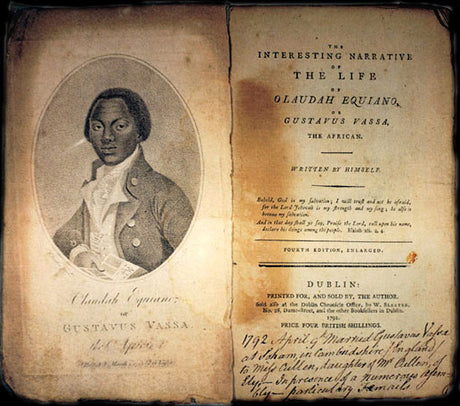 Olaudah Equiano;
or
GUSTAVUS VASSA,
the African
THE
INTERESTING NARRATIVE
OF
THE LIFE
OF
OLAUDAH EQUIANO,
OR
GUSTAVUS VASSA,
THE AFRICAN.
WRITTEN BY HIMSELF.
Behold, God is my salvation; I will trust and not be afraid,
for the Lord Jehovah is my strength and my song; he also is
become my salvation.
And in that day shall ye say, Praise the Lord, call upon his name,
declare his doings among the people. Isaiah xii. 2, 4.
FOURTH EDITION, ENLARGED.
DUBLIN:
PRINTED FOR, AND SOLD BY, THE AUTHOR.
Sold also at the Dublin Chronicle Office, by W. SLEATER,
No. 28, Dame-street, and the other Booksellers in Dublin.
1791.
PRICE FOUR BRITISH SHILLINGS.
1792 April 9th Married Gustavus Vassa
at Soham, in Cambridshire (England)
to Miss Cullen, daughter of Mr. Cullen, of
Ely, – In presence of a numerous assem
bly – particularly Femails